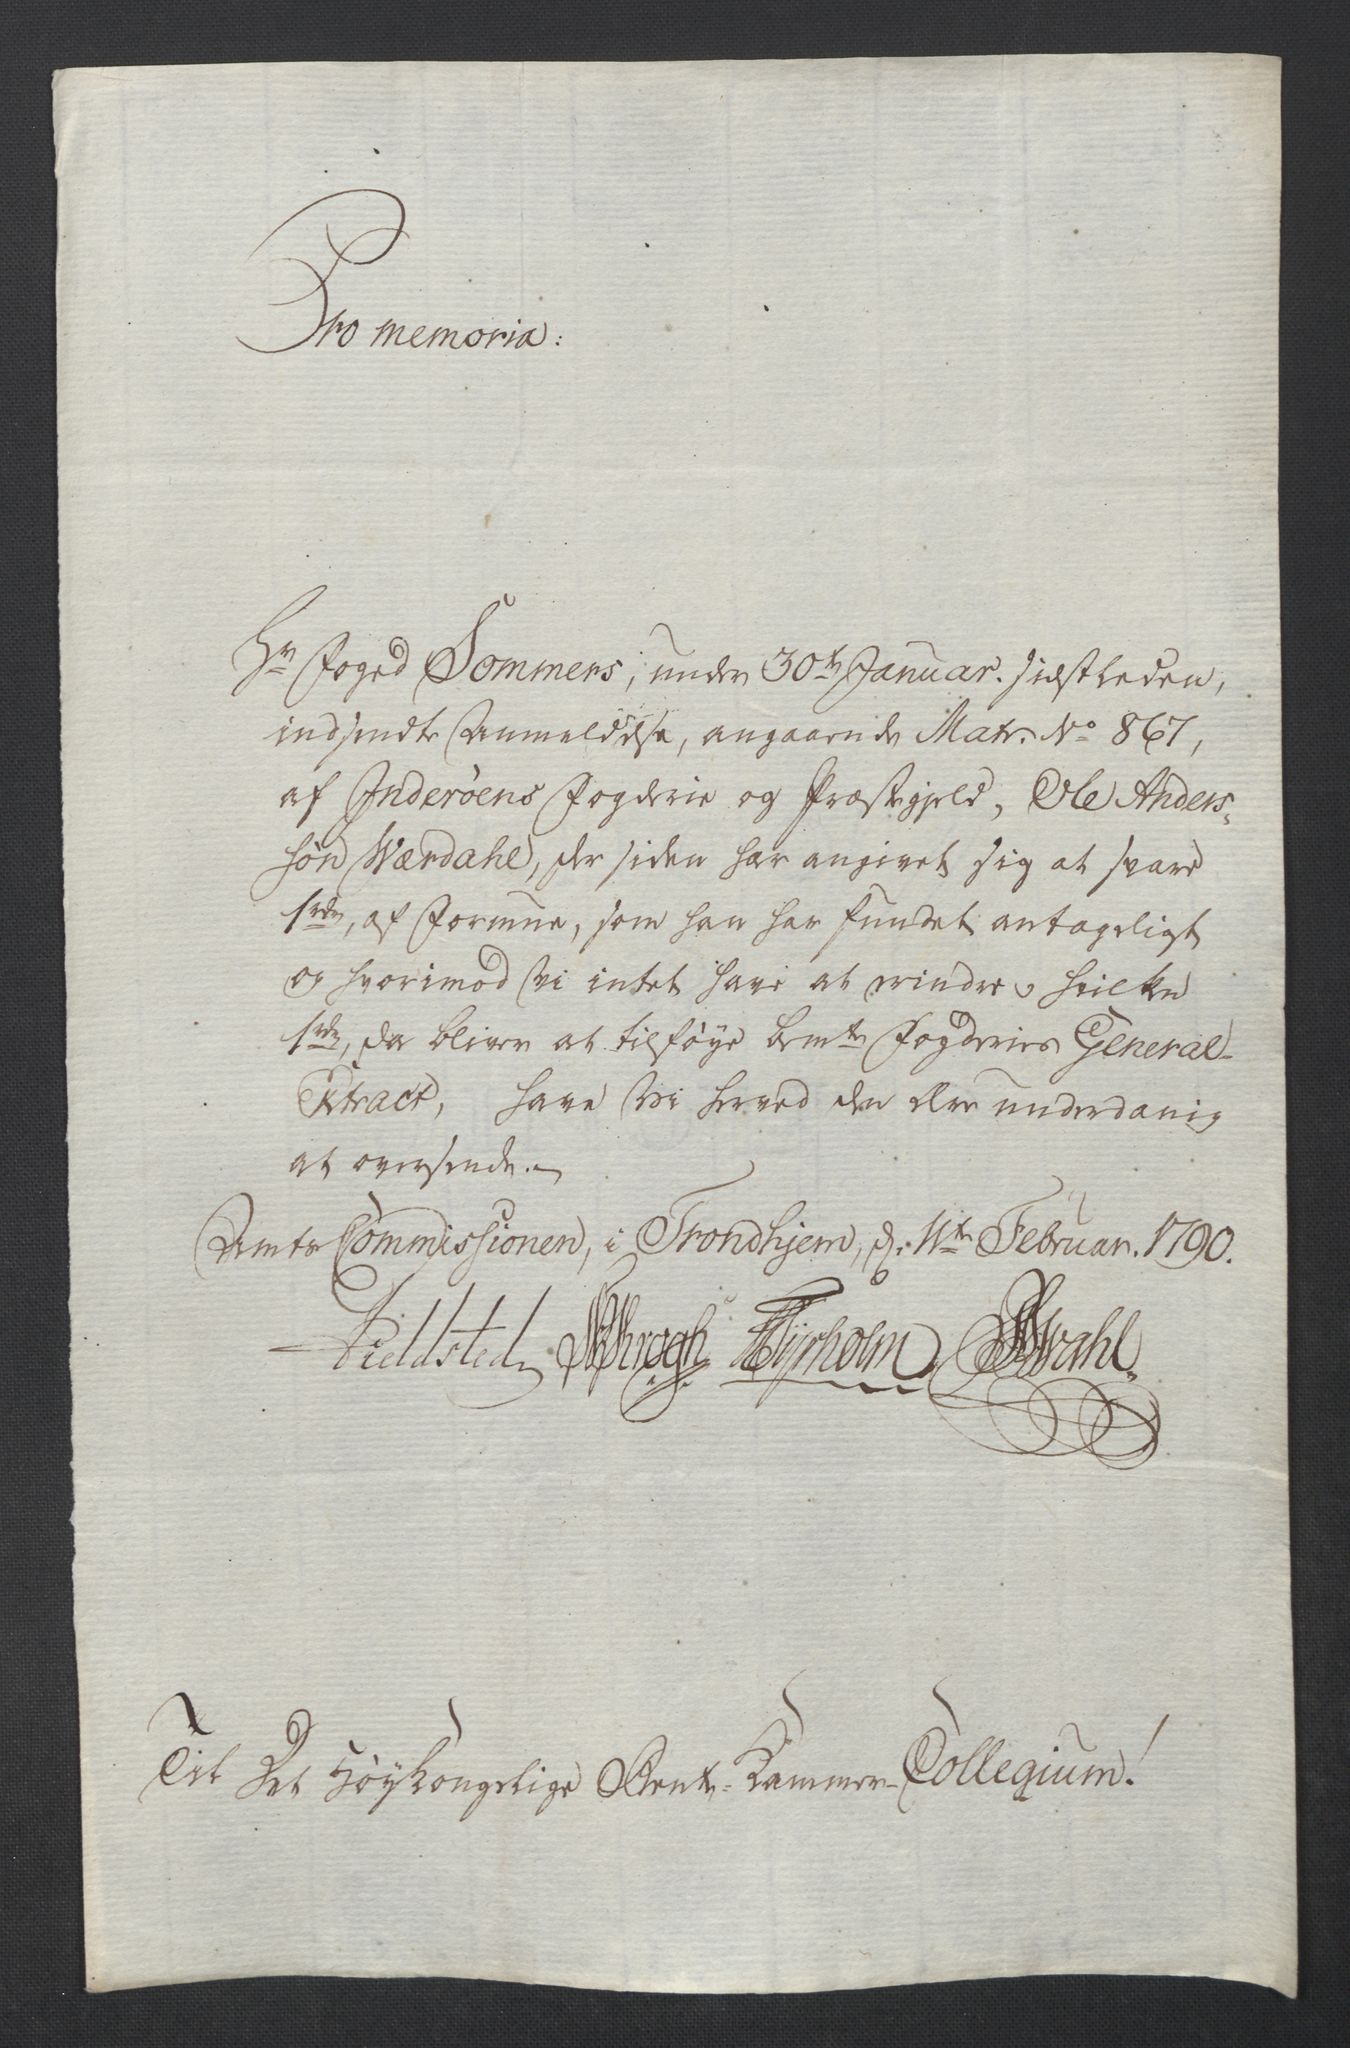 Pro memoria:
Hr Foged Sommers, under 30te Januar. sidstleden,
indsendte Anmeldelse, angaaende Matr. No 867,
af Inderöens Fogderie og Præstegjeld, Ole Anders-
sön Wærdahl, der siden har angivet sig at svare
1rdr, af Formue, som han har fundet antageligt
og hvorimod Vi intet have at erindre, hvilken
1rdr, da bliver at tilføye bemte Fogderies General-
Extract, have Vi herved den ære underdanig
at oversende.
Amts Commissionen, i Trondhjem, d. 11te Februar. 1790.
Fieldsted Krogh Tyrholm Wahl
Til Det Höykongelige Rente-Kammer-Collegium!